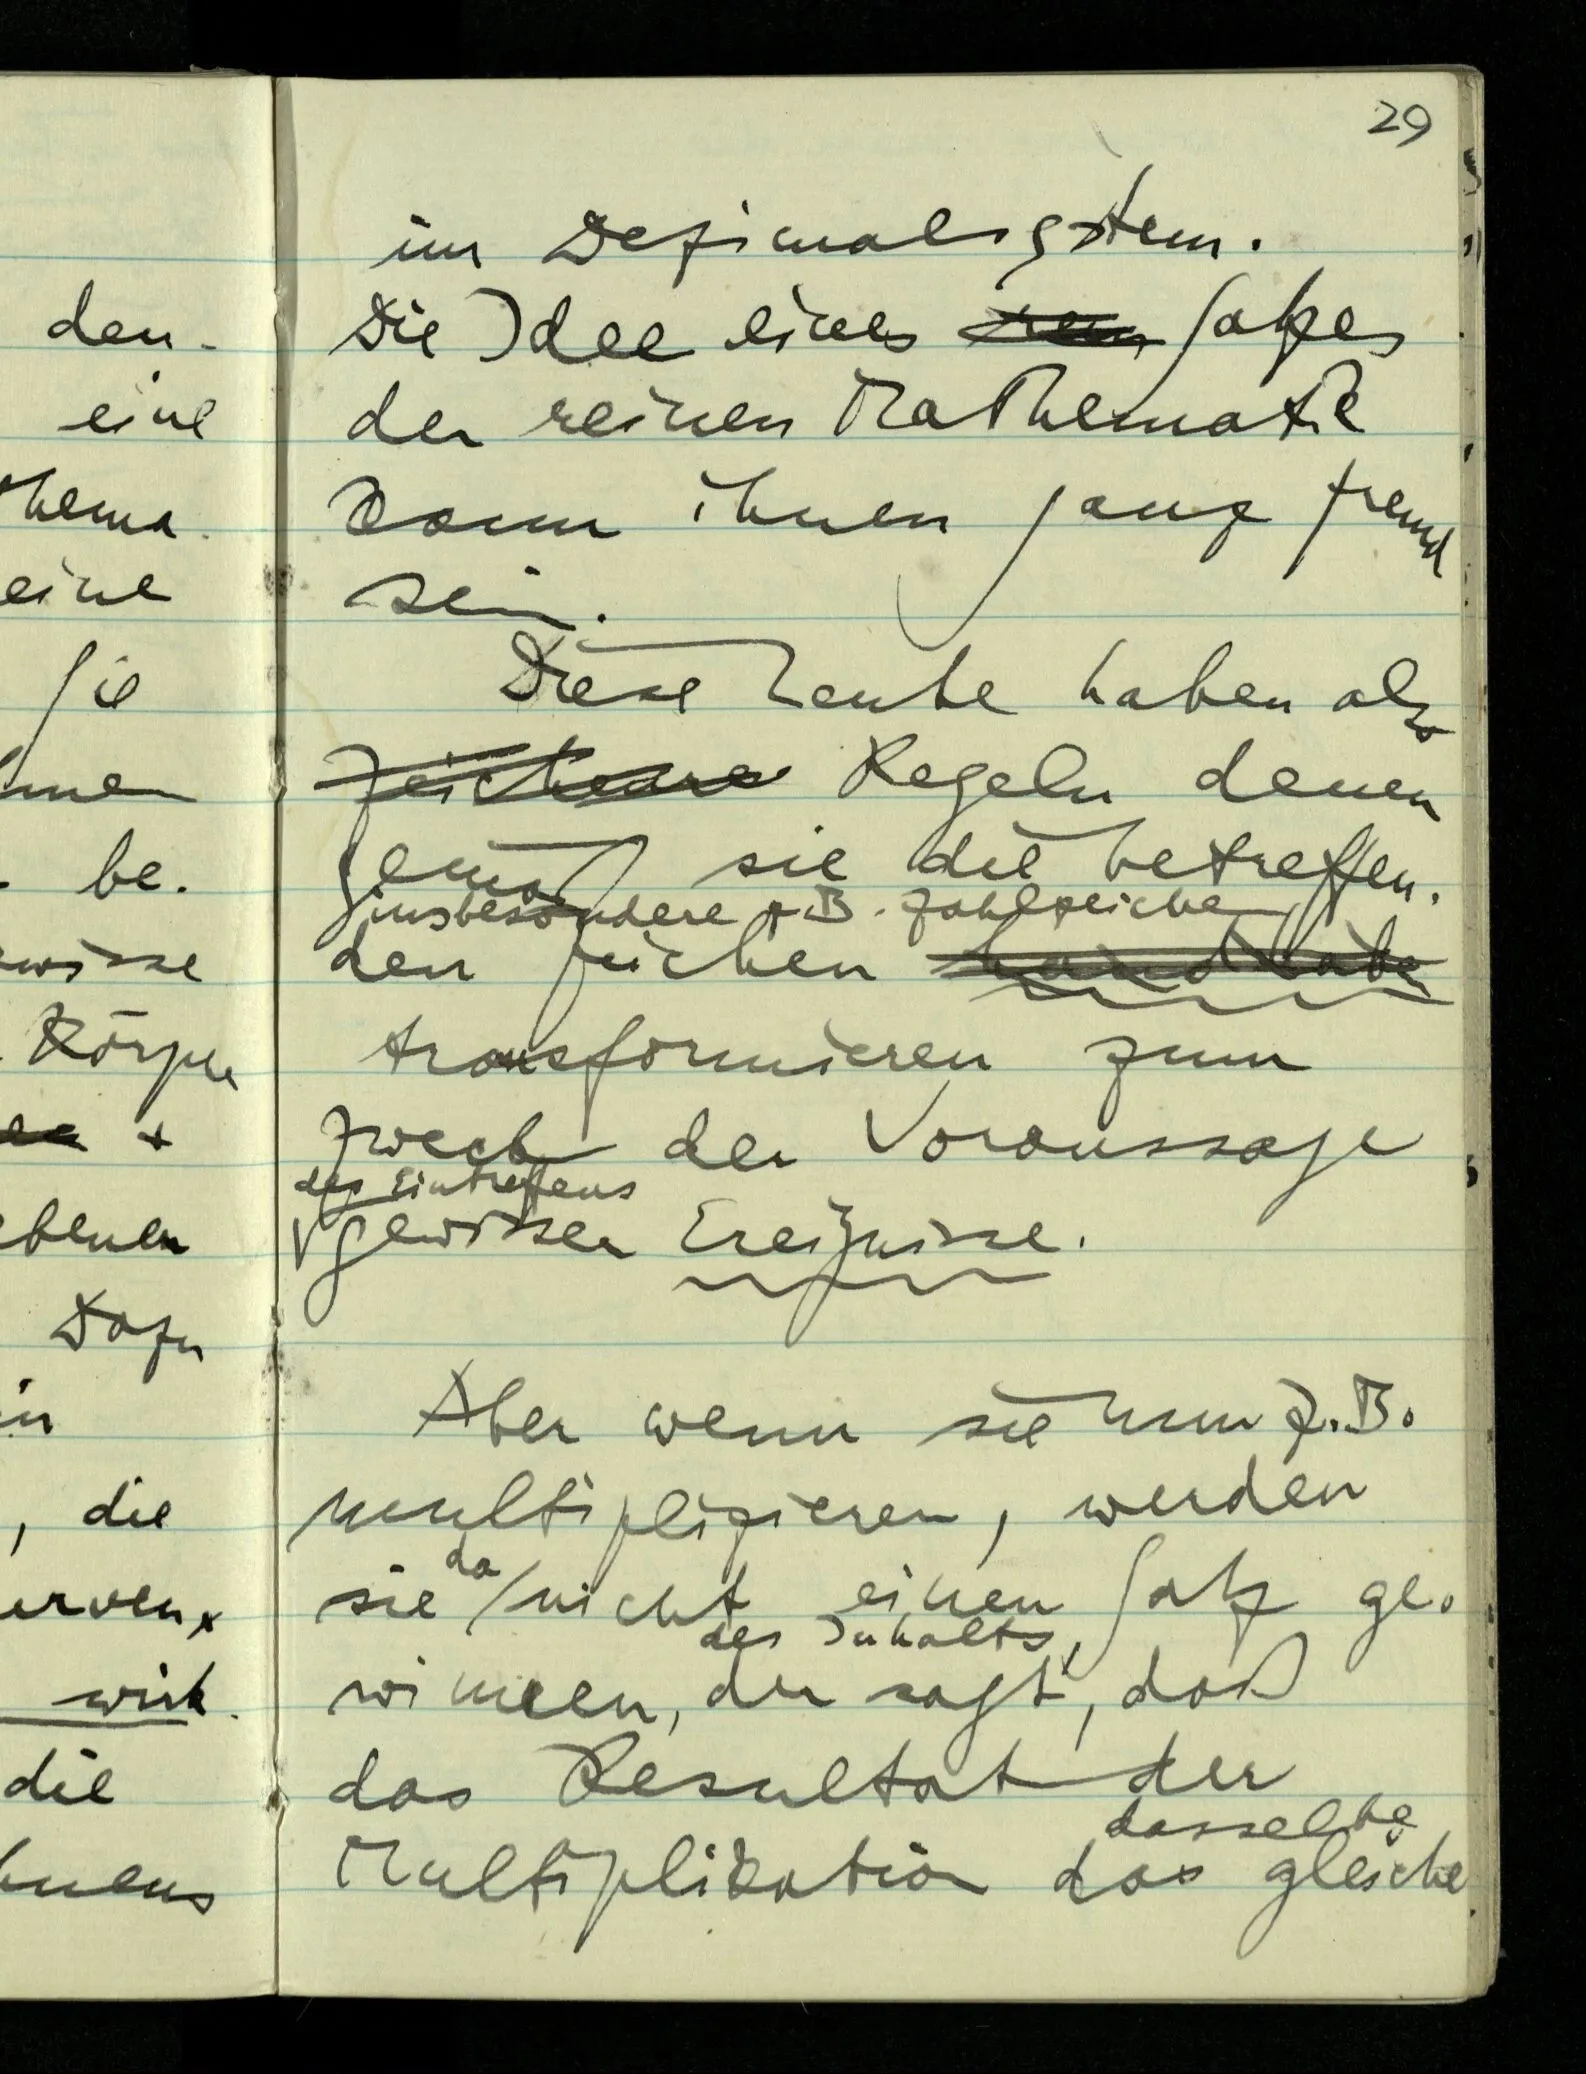 den-
eine
thema
eine
Sie
men
be-
wisse
Körper
+
ebenen
Dazu
in
, die
erven,
wirk
die
hnens
29
im Dezimalsystem.
Die Idee eines rein Satzes
der reinen Mathematik
kann ihnen ganz fremd
sein.
Diese Leute haben also
Zeichen Regeln denen
gemäß sie die betreffen-
insbesondere z.B. Zahlzeichen
den Zeichen handhaben
transformieren zum
Zweck der Voraussage
des Eintreffens
gewisser Ereignisse.
Aber wenn sie nun z.B.
multiplizieren, werden
da
sie nicht einen Satz ge-
des Inhalts,
winnen, der sagt, daß
das Resultat der
dasselbe
Multiplikation das gleiche